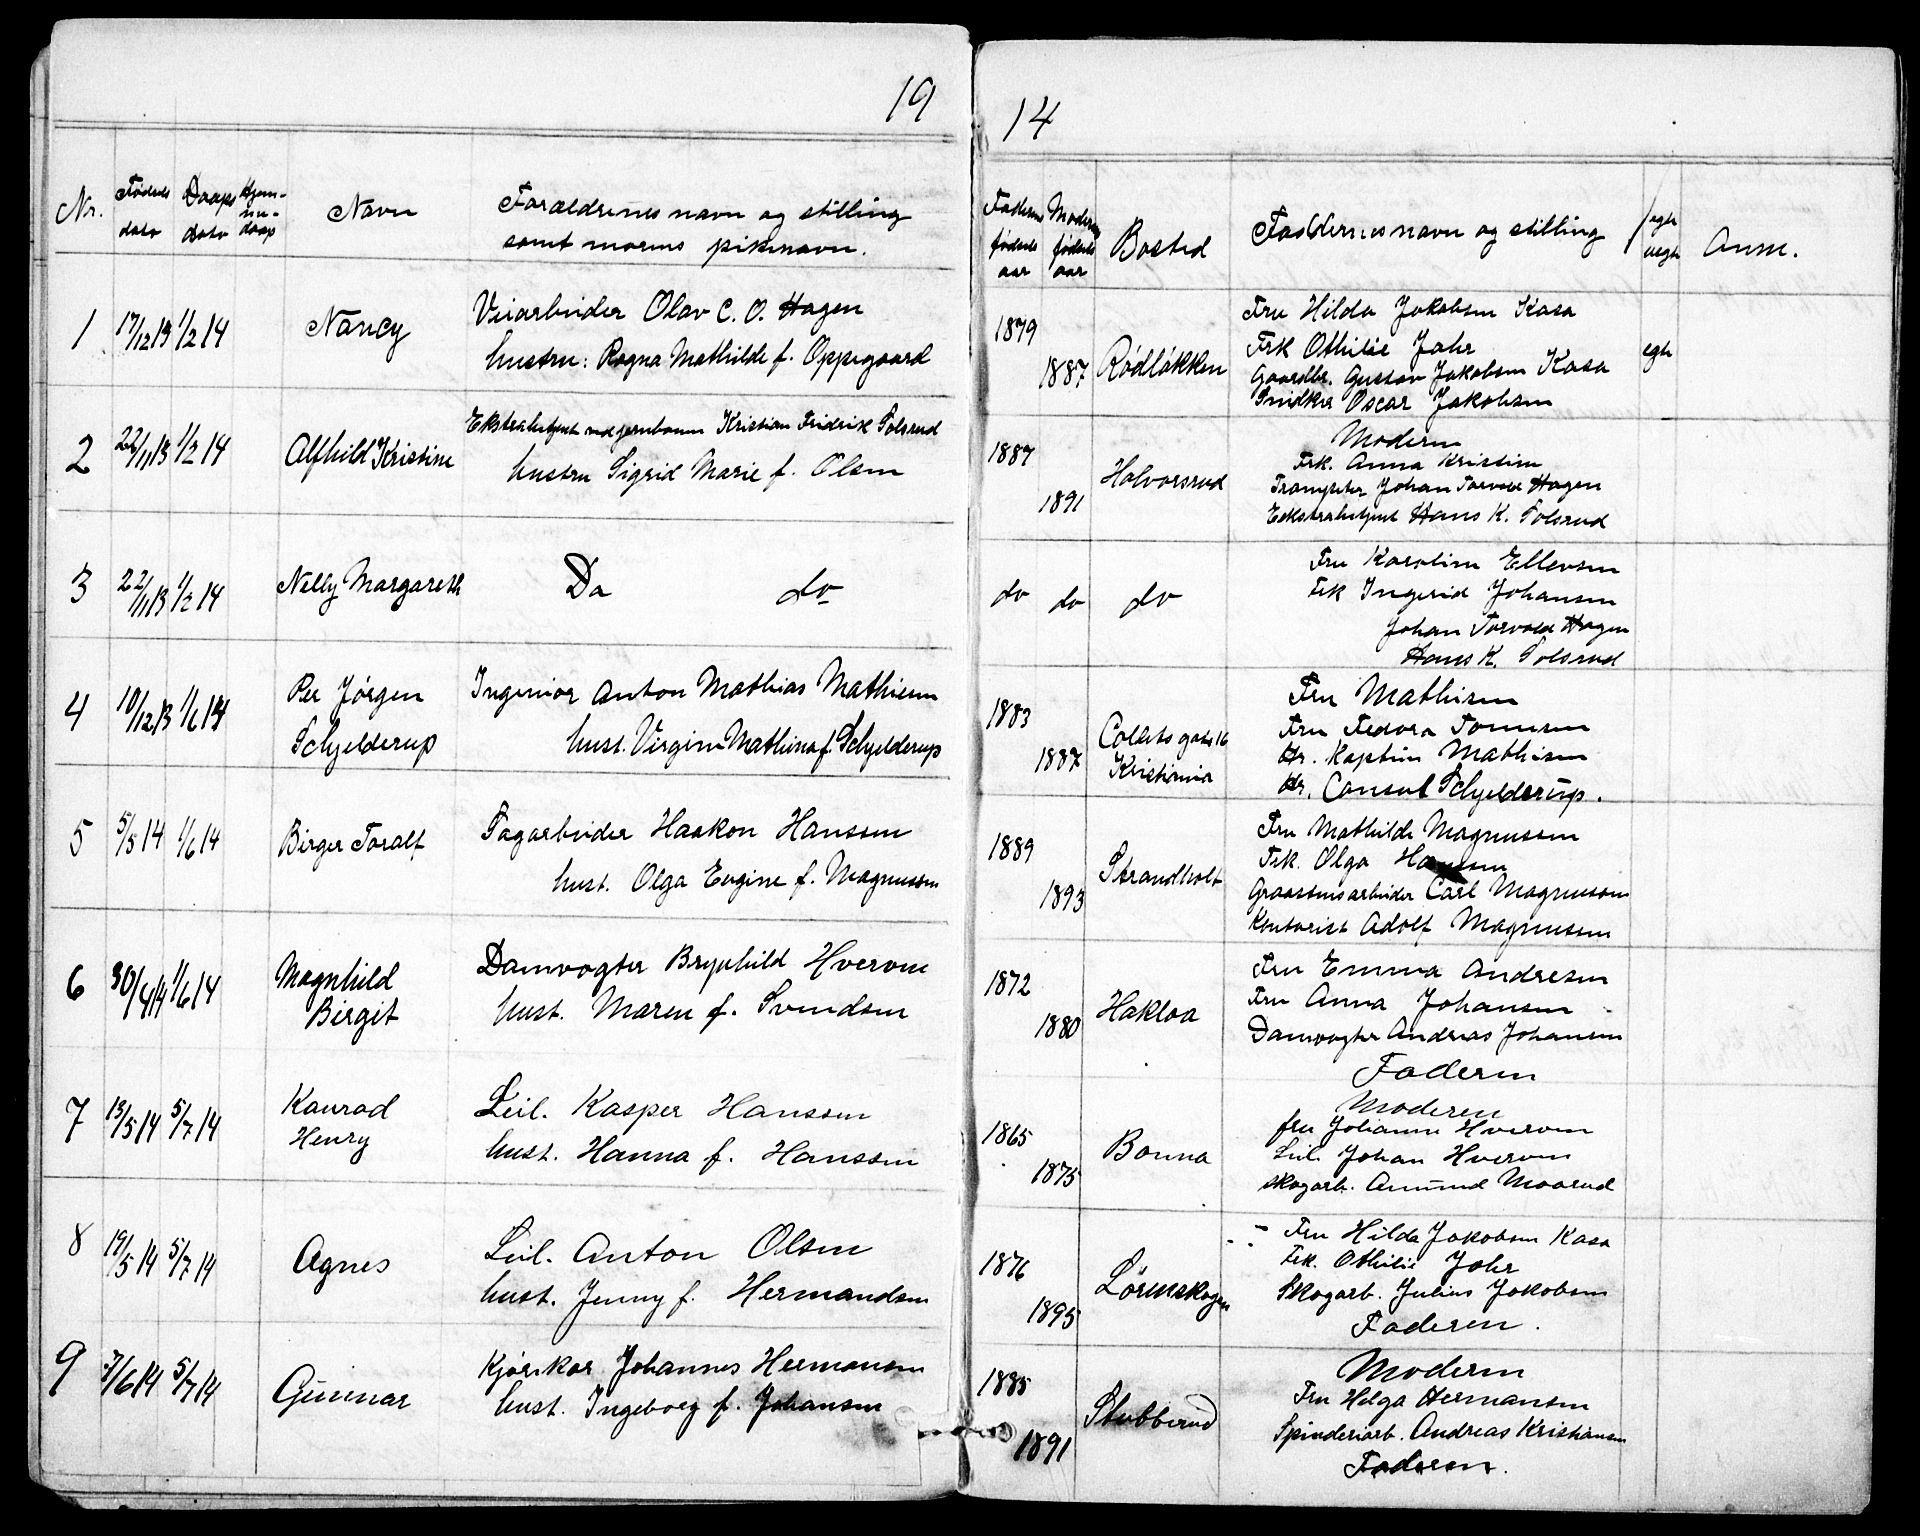 19
Nr.
Fødsels
dato
Daaps
dato
Hjem-
me-
daap
Navn
Forældrenes navn og stilling
samt morens pikenavn.
1
17/12 13
1/2 14
Nancy
Veiarbeider Olav C. O. Hagen
hustru: Ragna Mathilde f. Oppegaard
2
22/11 13
1/2 14
Alfhild Kristine
Ekstrabetjent ved jernbanen Kristian Fredrik Tolsrud
hustru Sigrid Marie f. Olsen
3
22/11 13
1/2 14
Nelly Margareth
Do do
4
10/12 13
1/6 14
Per Jørgen
Schjelderup
Ingeniør Anton Mathias Mathiesen
hust. Virginie Mathina f. Schjelderup
5
5/5 14
1/6 14
Birger Toralf
Sagarbeider Haakon Hanssen
hust. Olga Eugine f. Magnussen
6
30/4 14
1/6 14
Magnhild
Birgit
Damvogter Brynhild Hverven
hust. Maren f. Svendsen
7
13/5 14
5/7 14
Konrad
Henry
Leil. Kasper Hanssen
hust. Hanna f. Hanssen
8
19/5 14
5/7 14
Agnes
Leil. Anton Olsen
hust. Jenny f. Hermandsen
9
7/6 14
5/7 14
Gunnar
Kjørekar Johannes Hermansen
hust. Ingeborg f. Johansen
14
Faderens
fødsels
aar
Moderens
fødsels
aar
Bosted
Faddernes navn og stilling
egte
uegte
Anm.
1879
1887
Rødløkken
Fru Hilda Jakobsen Kasa
Frk Othilie Jahr
Gaardbr. Gustav Jakobsen Kasa
Snidker Oscar Jakobsen
egte
1887
1891
Halvorsrud
Moderen
Frk. Anna Kristine
Trompeter Johan Torvald Hagen
Eekstrabetjent Hans K. Tolsrud
do do do
Fru Karoline Ellevsen
Frk Ingerid Johansen
Johan Torvald Hagen
Hans K. Tolsrud
1883
1887
Collets gate 16
Kristiania
Fru Mathisen
Fru Fedora Tommesen
Hr. Kaptein Mathisen
Hr. Consul Schjelderup.
1889
1893
Strandholt
Fru Mathilde Magnussen
Frk. Olga Hansen
Graastensarbeider Carl Magnussen
Kontorist Adolf Magnussen
1872
1880
Hakloa
Fru Emma Andresen
Fru Anna Johansen
Damvogter Andreas Johansen
Faderen
1865
1875
Bonna
Moderen
fru Johanne Hverven
Leil. Johan Hverven
skogarb. Amund Moarud
1876
1895
Lørenskogen
Fru Hilda Jakobsen Kasa
Frk. Othilie Jahr
Skogarb. Julius Jakobsen
Faderen.
1885
1891
Stubberud
Moderen
Fru Helga Hermansen
Spinderiarb. Andreas Kristiansen
Faderen.